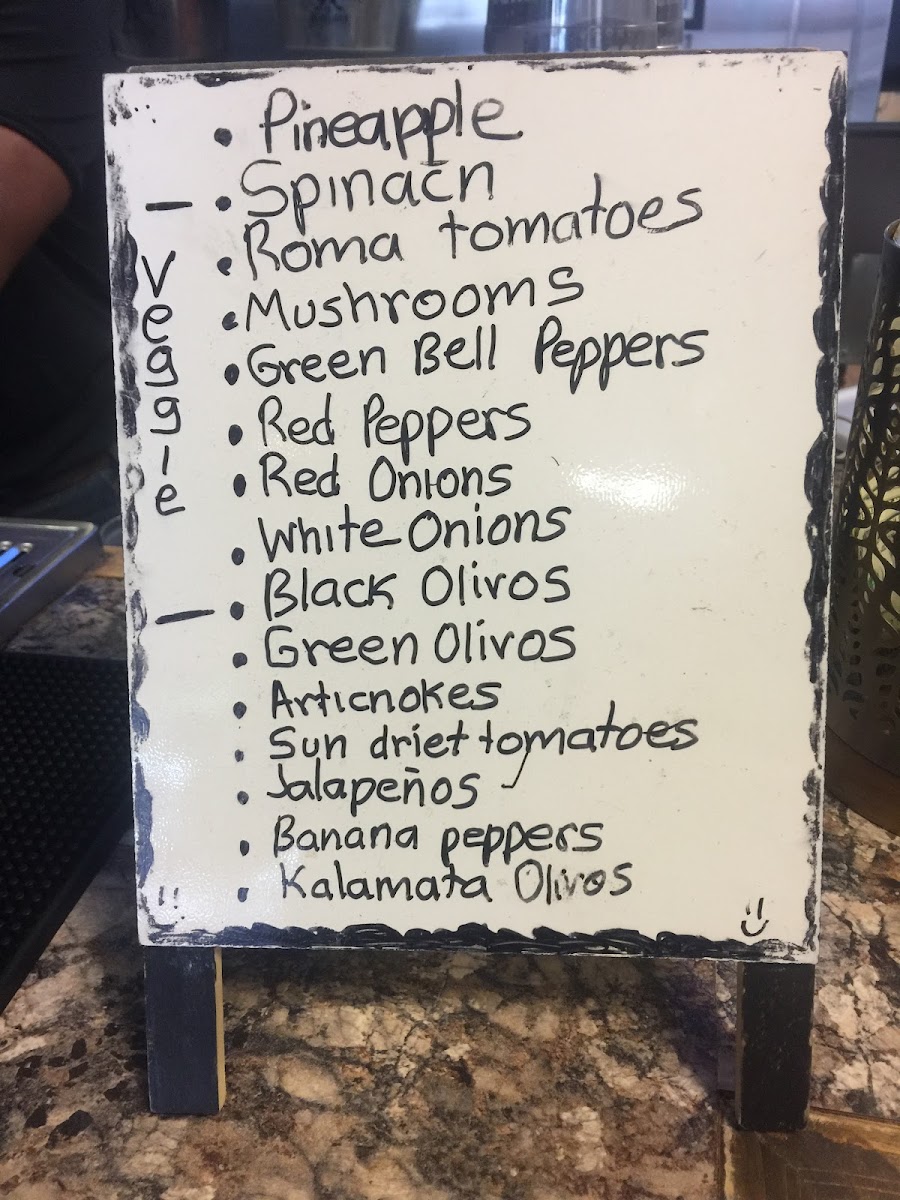 • Pineapple
• Spinach
• Roma tomatoes
• Mushrooms
• Green Bell Peppers
• Red Peppers
• Red Onions
• White Onions
• Black Olivos
• Green Olivos
• Articnokes
• Sun driet tomatoes
• Jalapeños
• Banana peppers
• Kalamata Olivos
— Veggie —